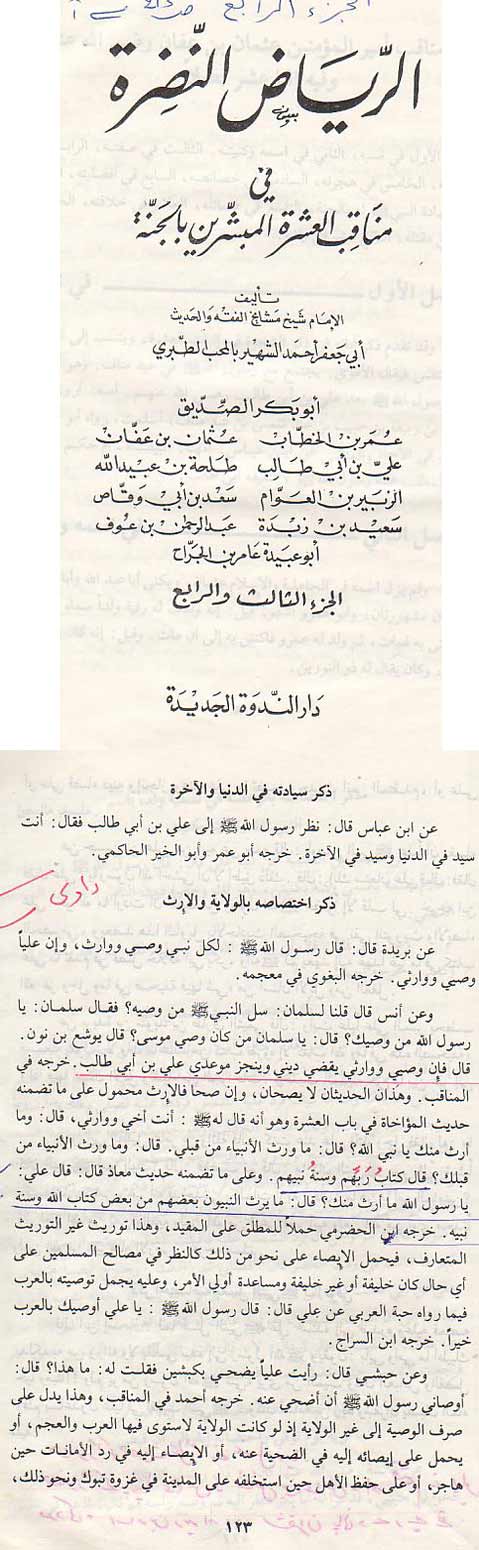 الجزء الرابع
الرياض النضرة
في
مناقب العشرة المبشرين بالجنة
تأليف
الإمام شيخ مشايخ الفقه والحديث
أبي جعفر أحمد الشهير بالمحب الطبري
أبو بكر الصديق
عمر بن الخطاب عثمان بن عفان
علي بن أبي طالب طلحة بن عبيد الله
الزبير بن العوام سعد بن أبي وقاص
سعيد بن زيدة عبد الرحمن بن عوف
أبو عبيدة عامر بن الجراح
الجزء الثالث والرابع
دار الندوة الجديدة
ذكر سيادته في الدنيا والآخرة
عن ابن عباس قال: نظر رسول الله ﷺ إلى علي بن أبي طالب فقال: أنت
سيد في الدنيا وسيد في الآخرة. خرجه أبو عمر وأبو الخير الحاكمي.
ذكر اختصاصه بالولاية والإرث
عن بريدة قال: قال رسول الله ﷺ : لكل نبي وصي ووارث، وإن علياً
وصيي ووارثي. خرجه البغوي في معجمه.
وعن أنس قال قلنا لسلمان: سل النبي ﷺ من وصيه؟ فقال سلمان: يا
رسول الله من وصيك؟ قال: يا سلمان من كان وصي موسى؟ قال يوشع بن نون.
قال فإن وصيي ووارثي يقضي ديني وينجز موعدي علي بن أبي طالب. خرجه في
المناقب. وهذان الحديثان لا يصحان، وإن صحا فالإرث محمول على ما تضمنه
حديث المؤاخاة في باب العشرة وهو أنه قال له ﷺ : أنت أخي ووارثي، قال: وما
أرث منك يا نبي الله؟ قال: ما ورث الأنبياء من قبلي. قال: وما ورث الأنبياء من
قبلك؟ قال كتابُ رَبِّهم وسنةُ نبيهم. وعلى ما تضمنه حديث معاذ قال: قال علي:
يا رسول الله ما أرث منك؟ قال: ما يرث النبيون بعضهم من بعض كتاب الله وسنة
نبيه. خرجه ابن الحضرمي حملاً للمطلق على المقيد، وهذا توريث غير التوريث
المتعارف، فيحمل الإيصاء على نحو من ذلك كالنظر في مصالح المسلمين على
أي حال كان خليفة أو غير خليفة ومساعدة أولي الأمر، وعليه يجمل توصيته بالعرب
فيما رواه حبة العربي عن علي قال: قال رسول الله ﷺ : يا علي أوصيك بالعرب
خيراً. خرجه ابن السراج.
وعن حبشي قال: رأيت علياً يضحي بكبشين فقلت له: ما هذا؟ قال:
أوصاني رسول الله ﷺ أن أضحي عنه. خرجه أحمد في المناقب، وهذا يدل على
صرف الوصية إلى غير الولاية إذ لو كانت الولاية لاستوى فيها العرب والعجم، أو
يحمل على إيصائه إليه في الضحية عنه، أو الإيصاء إليه في رد الأمانات حين
هاجر، أو على حفظ الأهل حين استخلفه على المدينة في غزوة تبوك ونحو ذلك،
١٢٣